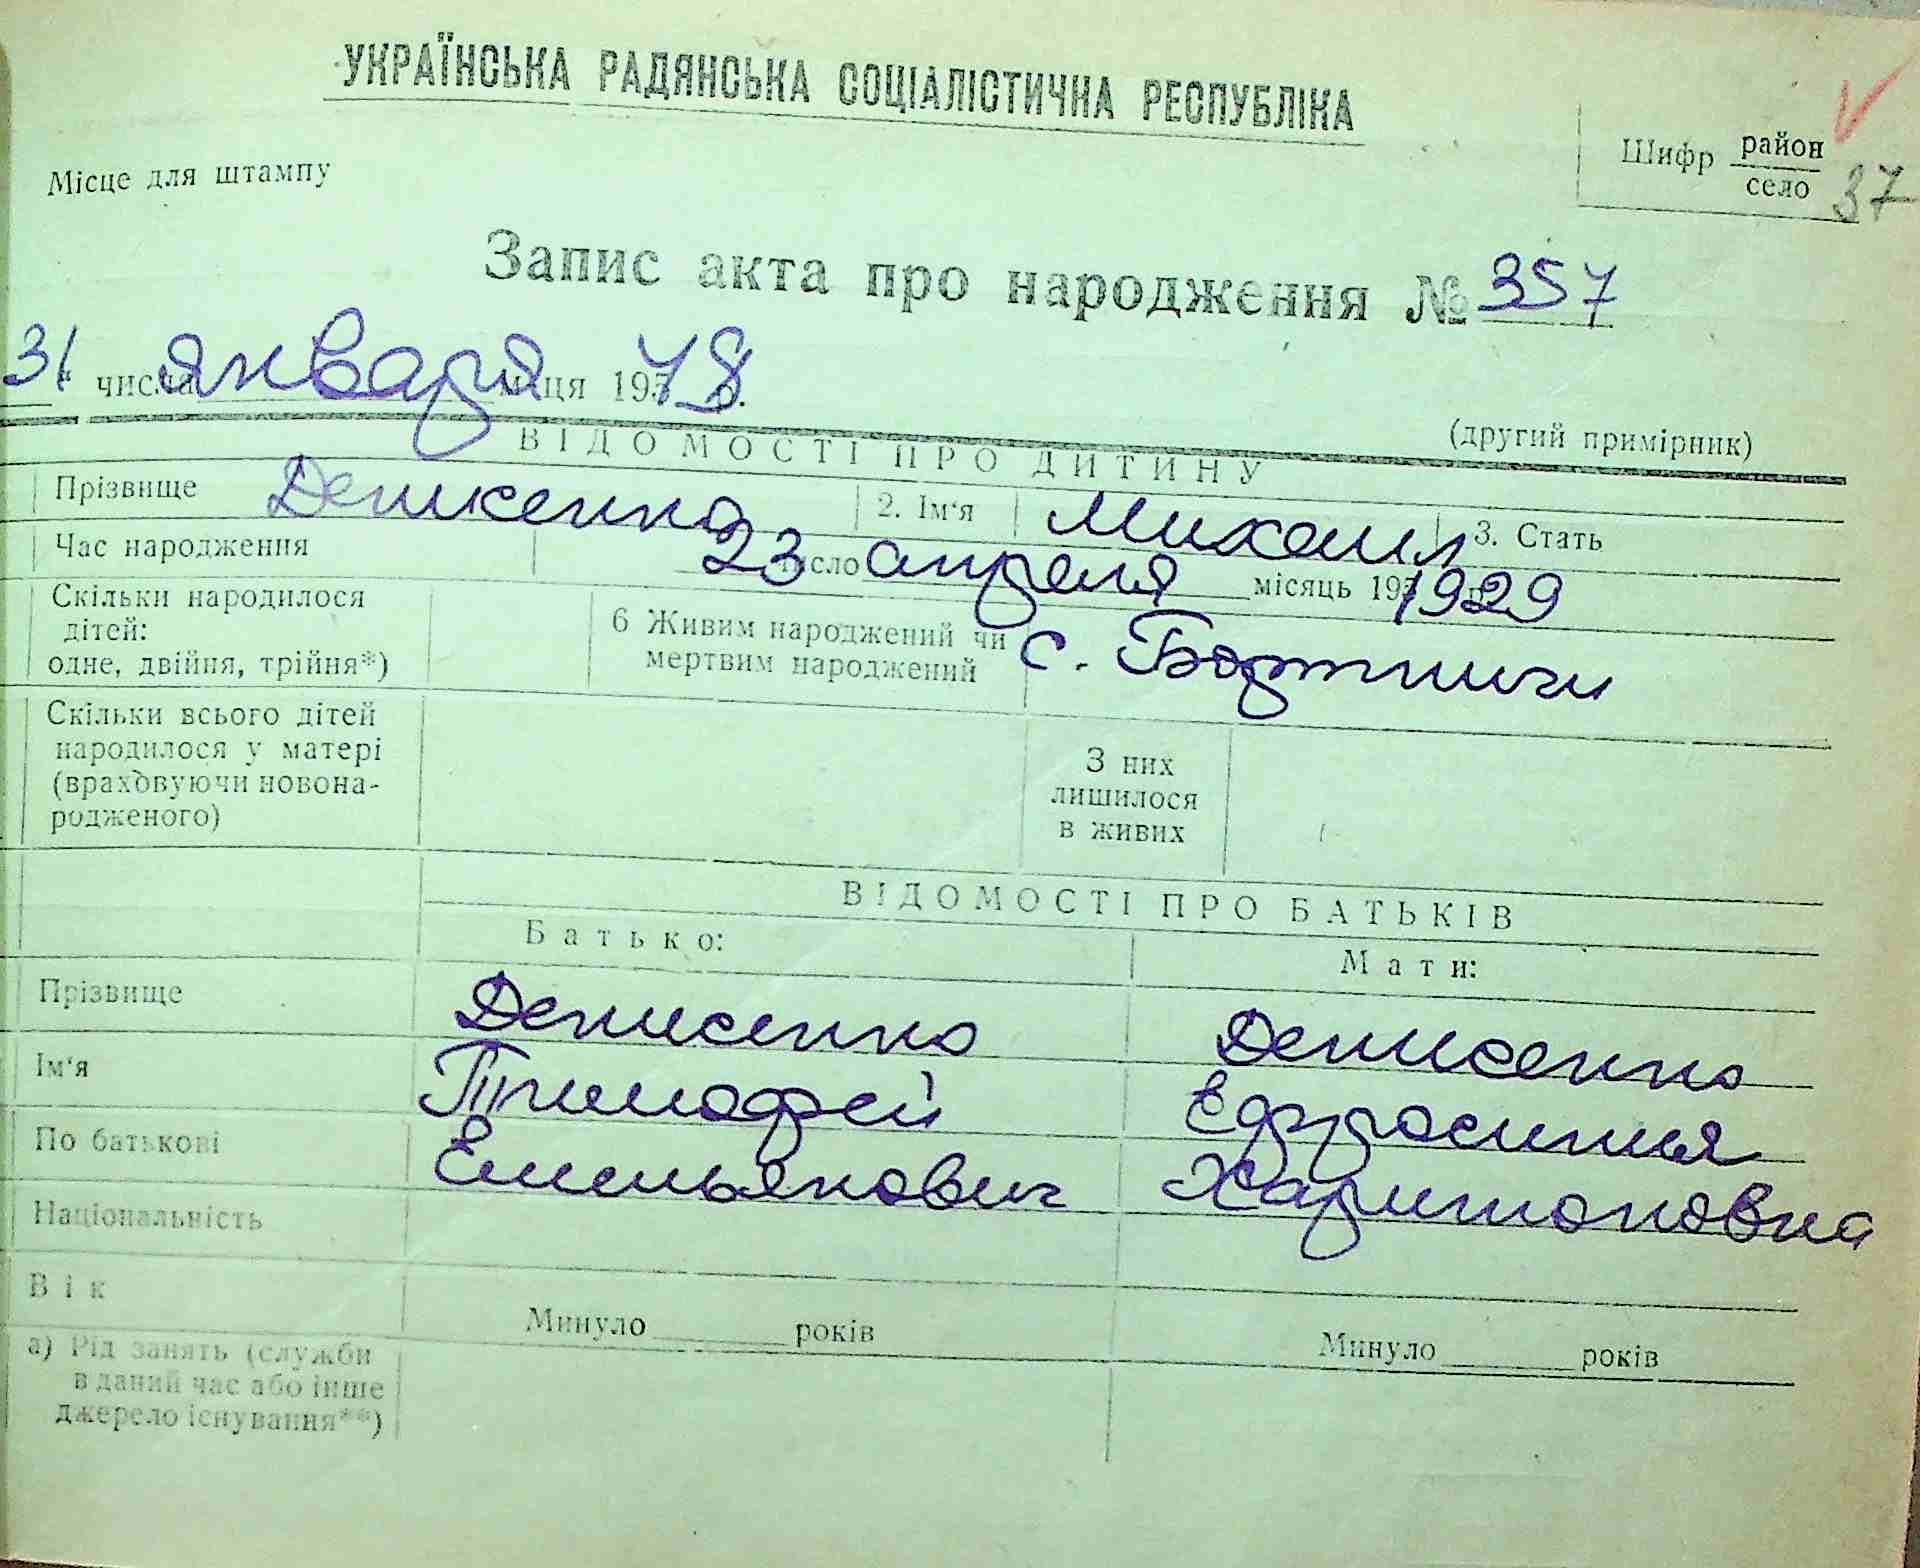 УКРАЇНСЬКА РАДЯНСЬКА СОЦІАЛІСТИЧНА РЕСПУБЛІКА
Місце для штампу
Шифр район
село 37
Запис акта про народження № 357
31 числа января м-ця 1978 р.
(другий примірник)
ВІДОМОСТІ ПРО ДИТИНУ
Прізвище Денисенко 2. Ім'я Михаил 3. Стать
Час народження 23 число апреля місяць 195 1929
Скільки народилося
дітей:
одне, двійня, трійня*)
6 Живим народжений чи
мертвим народжений
с. Бортничи
Скільки всього дітей
народилося у матері
(враховуючи новона-
родженого)
З них
лишилося
в живих
ВІДОМОСТІ ПРО БАТЬКІВ
Батько:
Мати:
Прізвище Денисенко Денисенко
Ім'я Тимофей Ефросиния
По батькові Емельянович Харитоновна
Національність
Вік Минуло років Минуло років
а) Рід занять (служби
в даний час або інше
джерело існування**)